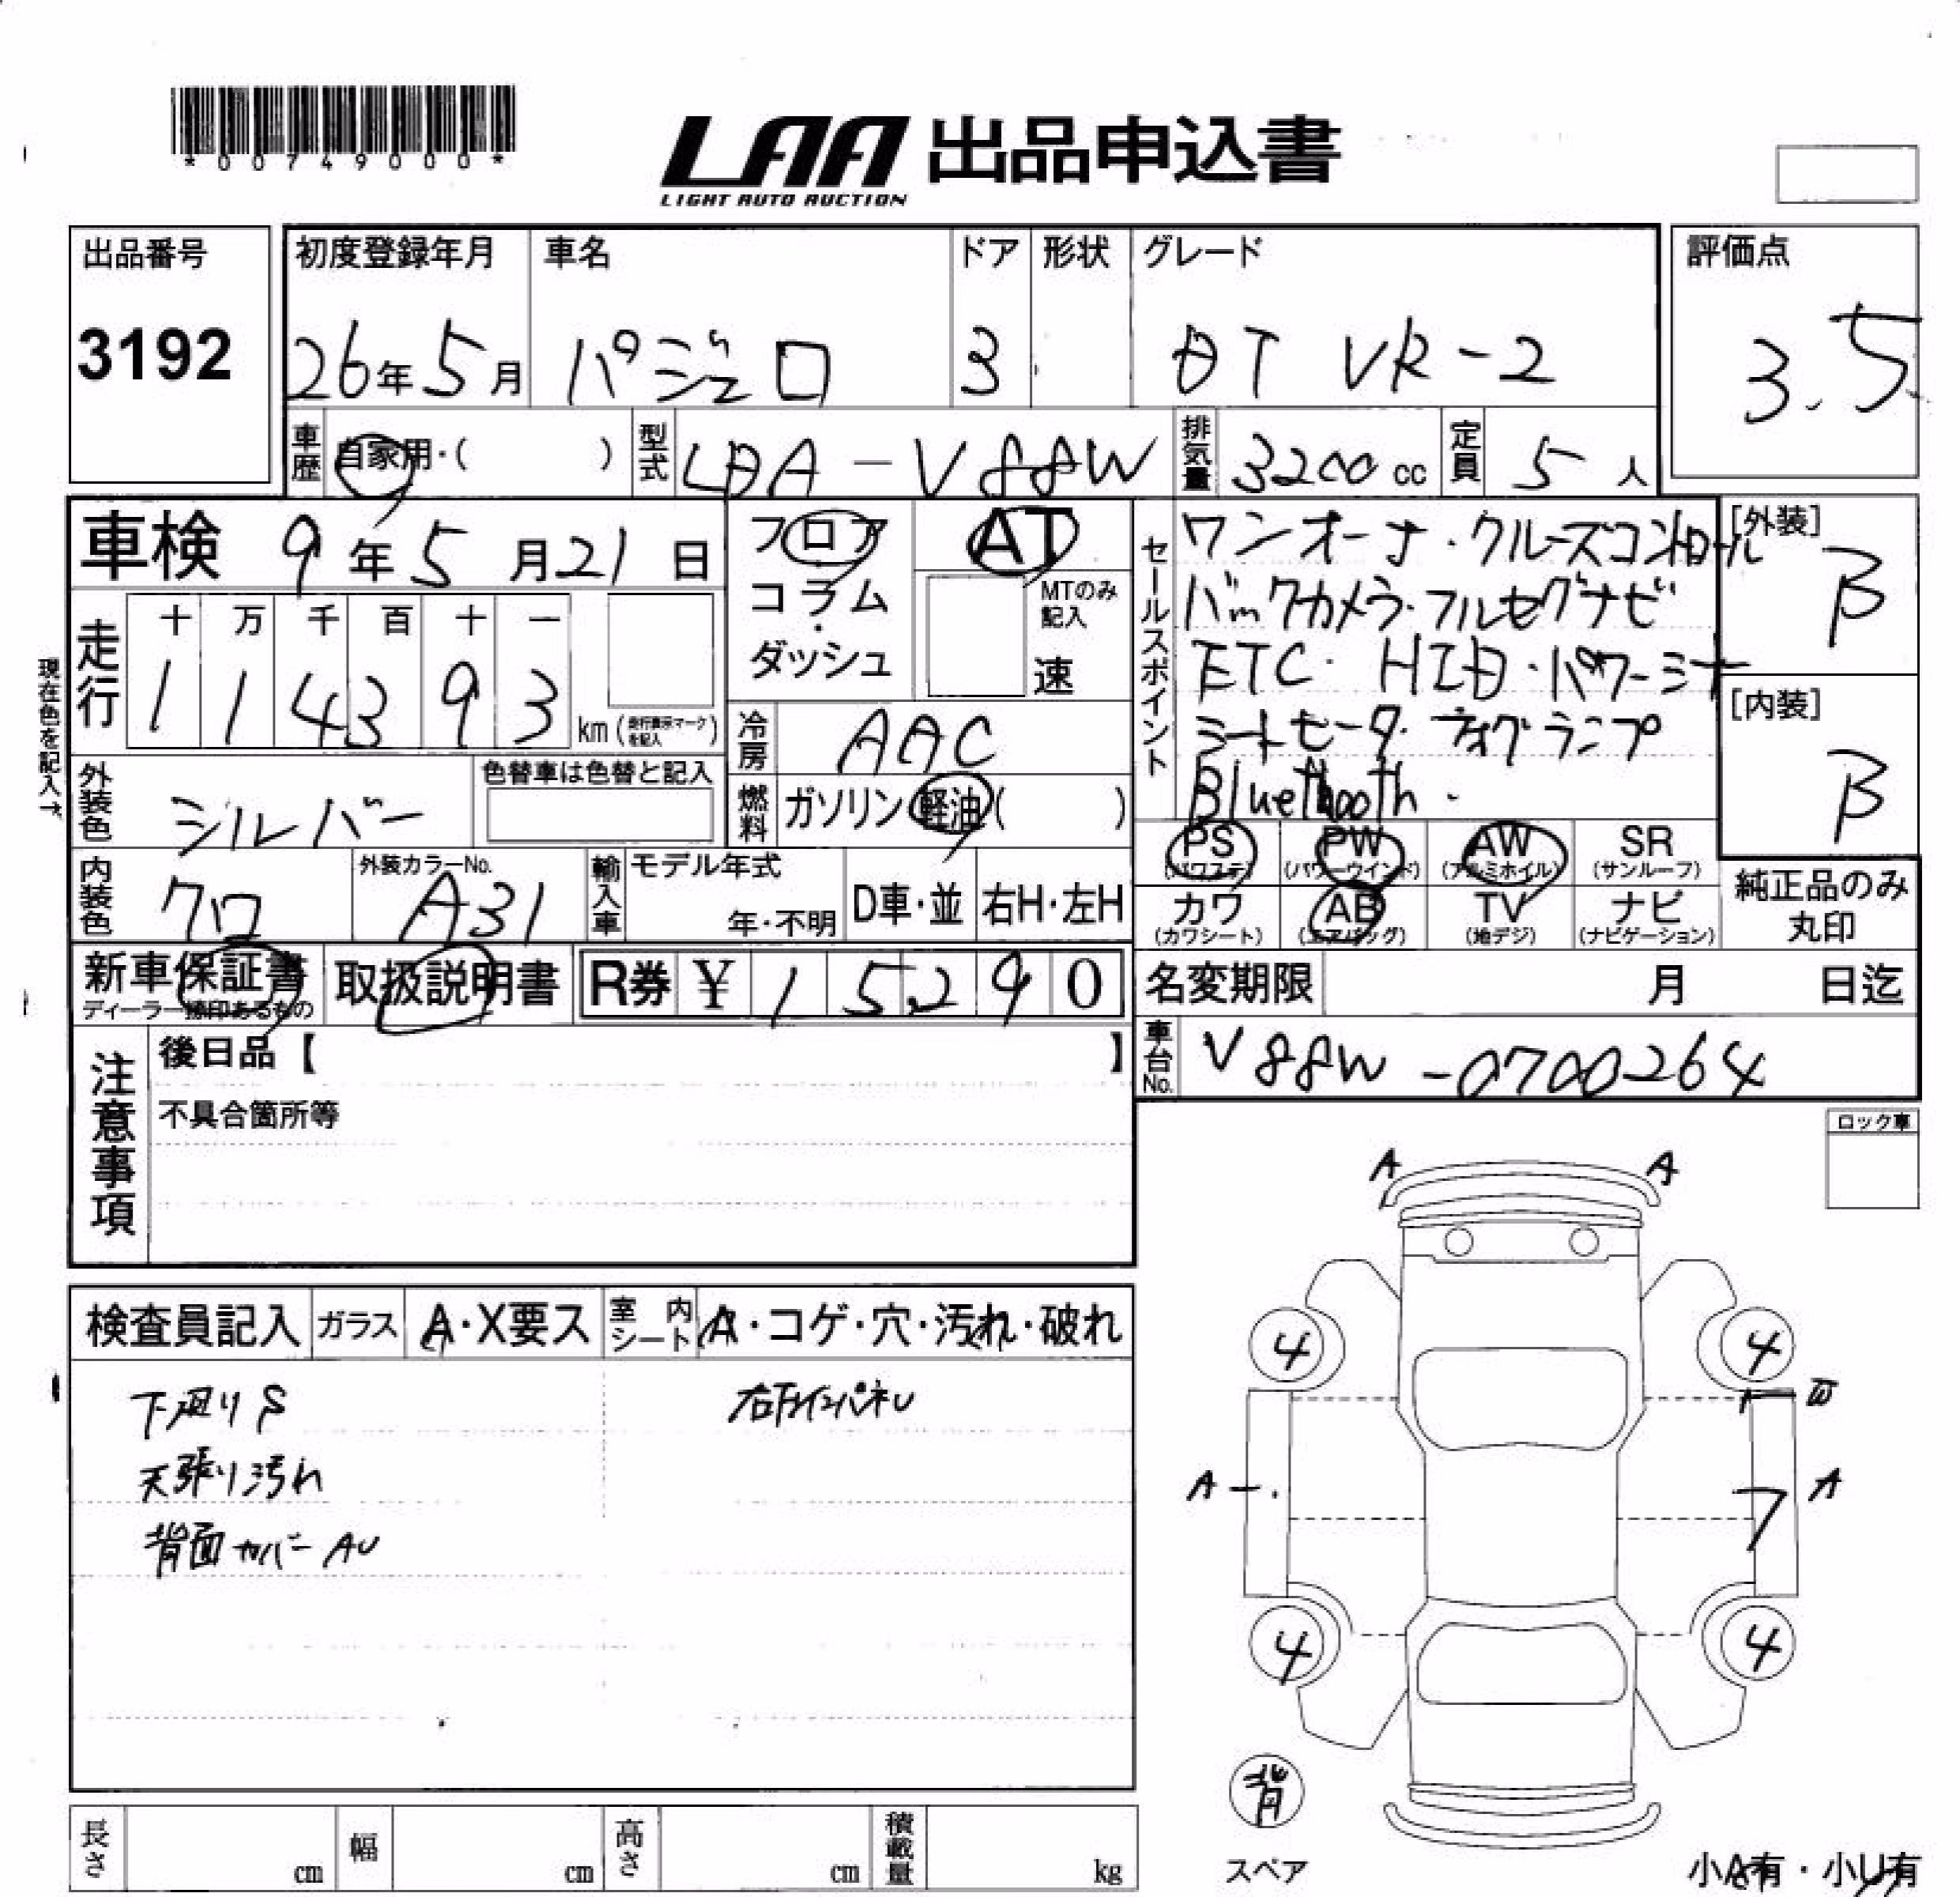 *00749000*
LAA 出品申込書
LIGHT AUTO AUCTION
出品番号
3192
初度登録年月
26年5月
車名
パジェロ
ドア
3
形状
グレード
DT VR-2
評価点
3.5
車歴
自家用・( )
型式
LDA-V88W
排気量
3200cc
定員
5人
車検 9年5月21日
フロア
コラム
・
ダッシュ
AT
MTのみ
記入
速
セールスポイント
ワンオーナ・クルーズコントロール
バックカメラ・フルセグナビ
ETC・HID・パワーミラー
シートヒータ・フォグランプ
Bluetooth・
[外装]
B
[内装]
B
現在色を記入→
走行
十 万 千 百 十 一
1 1 4 3 9 3
km(走行表示マークを記入)
冷房
AAC
外装色
シルバー
色替車は色替と記入
燃料
ガソリン・軽油( )
内装色
クロ
外装カラーNo.
A31
輸入車
モデル年式
年・不明
D車・並
右H・左H
PS
(パワステ)
PW
(パワーウインド)
AW
(アルミホイル)
SR
(サンルーフ)
カワ
(カワシート)
AB
(エアバッグ)
TV
(地デジ)
ナビ
(ナビゲーション)
純正品のみ
丸印
新車保証書
ディーラー捺印あるもの
取扱説明書
R券 ¥ 15290
名変期限
月 日迄
車台No.
V88W-0700264
注意事項
後日品【 】
不具合箇所等
ロック車
検査員記入
ガラス
A・X要ス
室内シート
A・コゲ・穴・汚れ・破れ
下廻りS
天張り汚れ
背面カバーAU
A A
4 4
A A
4 4
背
スペア
小A有・小U有
長さ
cm
幅
cm
高さ
cm
積載量
kg